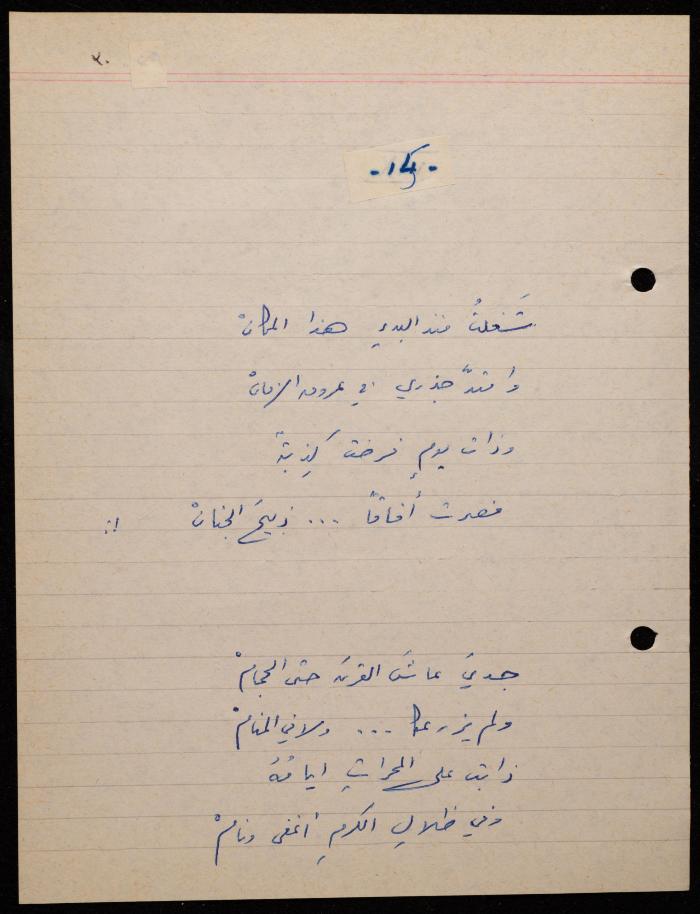 ٢٠
- ١٤ -
شَغلتُ منذ البدءِ هذا المكانْ
وامتدَّ جذري في عروق الزمانْ
وذات يومٍ فرضت كِذبةٌ
فصرت أفاقاً ... ذبيحَ الجنانْ !:
جديَ عاشَ القرنَ حتى الحِمامْ
ولم يزر عكا ... ولا في المنامْ
ذابت على المحراثِ ايامُهُ
وفي ظلالِ الكرمِ أغفى ونامْ